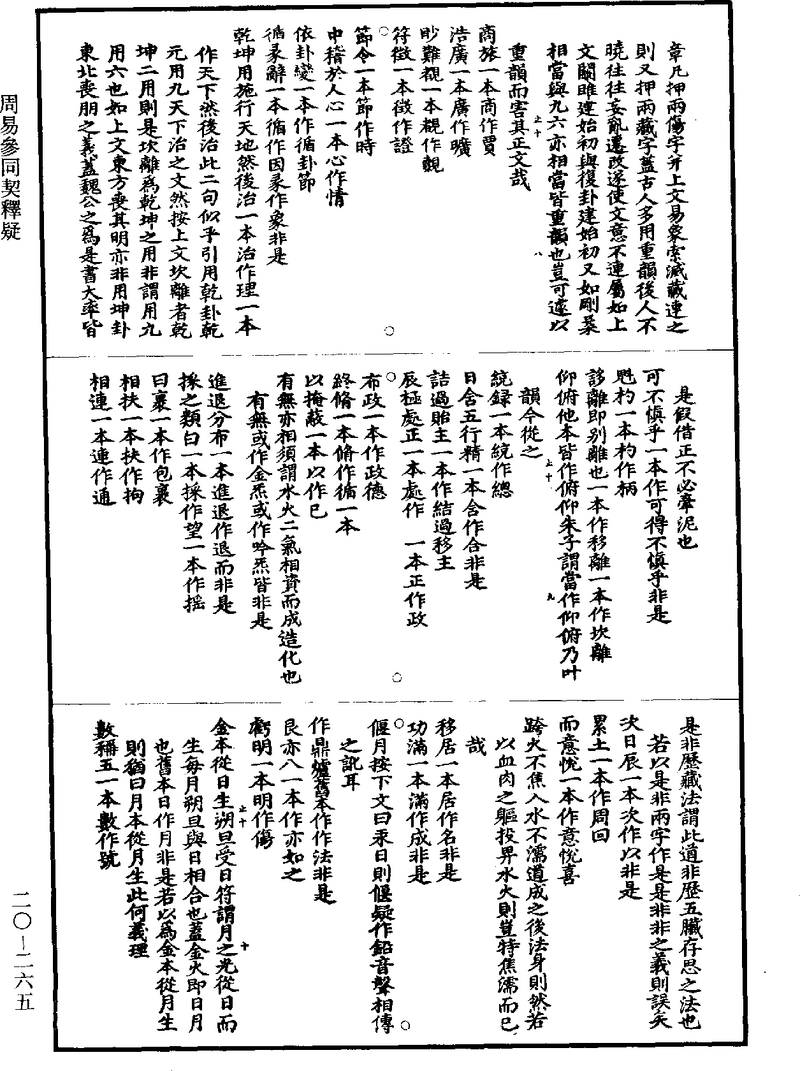 周易參同契釋疑
章凡押兩傷字并上文易象索滅藏連之
則又押兩藏字蓋古人多用重韻後人不
曉往往妄亂遷改遂使文意不連屬如上
文關雎建始初與復卦建始初又如剛柔
相當與九六亦相當皆重韻也豈可遽以
上十 八
重韻而害其正文哉
商旅一本商作賈
浩廣一本廣作曠
眇難覩一本覩作觀
符徵一本徵作證
節令一本節作時
中稽於人心一本心作情
依卦變一本作循卦節
循彖辭一本循作因彖作象非是
乾坤用施行天地然後治一本治作理一本
作天下然後治此二句似乎引用乾卦乾
元用九天下治之文然按上文坎離者乾
坤二用則是坎離爲乾坤之用非謂用九
用六也如上文東方喪其明亦非用坤卦
東北喪朋之義蓋魏公之爲是書大率皆
是假借正不必牽泥也
可不慎乎一本作可得不慎乎非是
魁杓一本杓作柄
誃離即別離也一本作移離一本作坎離
仰俯他本皆作俯仰朱子謂當作仰俯乃叶
上十 九
韻今從之
統録一本統作總
日含五行精一本含作合非是
詰過貽主一本作結過移主
辰極處正一本處作 一本正作政
布政一本作政德
終脩一本脩作循一本
以掩蔽一本以作已
有無亦相須謂水火二氣相資而成造化也
有無或作金炁或作吟炁皆非是
進退分布一本進退作退而非是
採之類白一本採作望一本作摇
曰裹一本作包裹
相扶一本扶作拘
相連一本連作通
是非歷藏法謂此道非歷五臟存思之法也
若以是非兩字作是是非非之義則誤矣
次日辰一本次作以非是
累土一本作周回
而意悅一本作意悅喜
跨火不焦入水不濡道成之後法身則然若
以血肉之軀投畀水火則豈特焦濡而已
哉
移居一本居作名非是
功滿一本滿作成非是
偃月按下文曰汞日則偃疑作鉛音聲相傳
之訛耳
作鼎爐舊本作作法非是
艮亦八一本作亦如之
虧明一本明作傷
上十 十
金本從日生朔旦受日符謂月之光從日而
生每月朔旦與日相合也蓋金火即日月
也舊本日作月非是若以爲金本從月生
則猶曰月本從月生此何義理
數稱五一本數作號
二〇—二六五